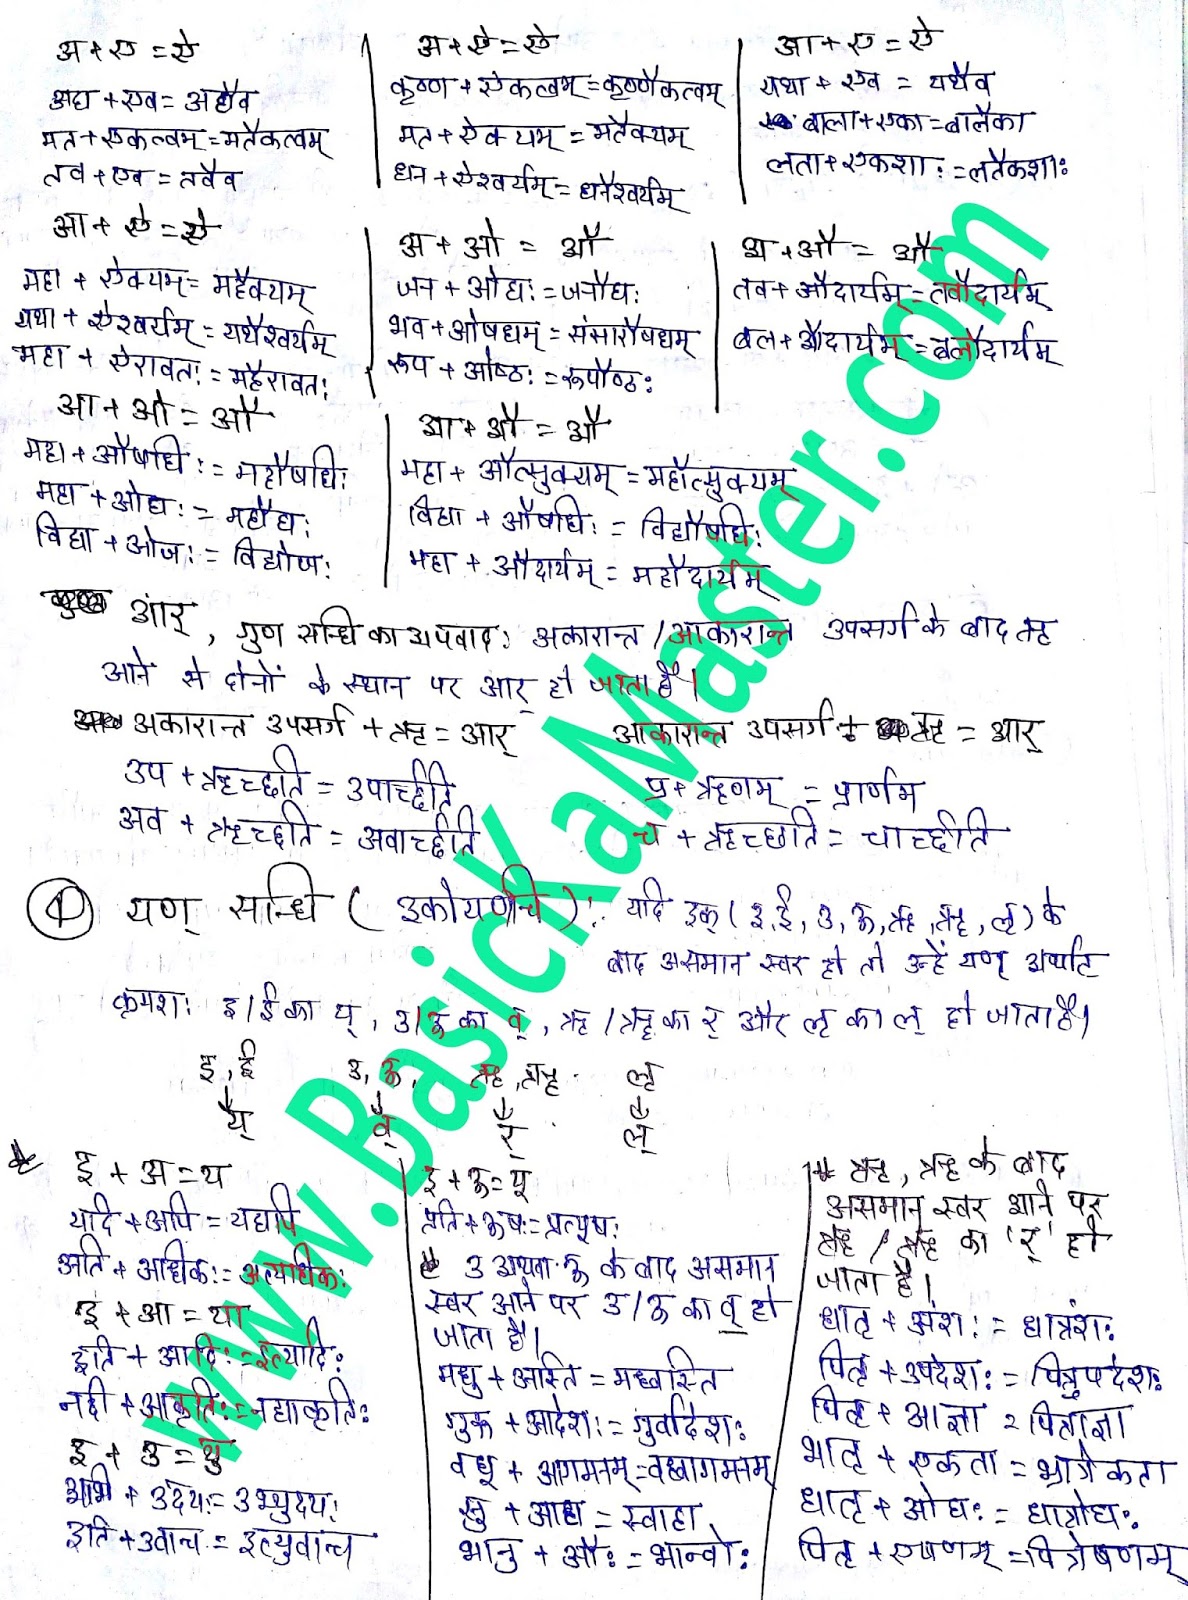 अ + ए = ऐ
अद्य + एव = अद्यैव
मत + एकत्वम् = मतैकत्वम्
तव + एव = तवैव
अ + ऐ = ऐ
कृष्ण + ऐकत्वम् = कृष्णैकत्वम्
मत + ऐक्यम् = मतैक्यम्
धन + ऐश्वर्यम् = धनैश्वर्यम्
आ + ए = ऐ
यथा + एव = यथैव
बाला + एका = बालैका
लता + एकशा: = लतैकशा:
आ + ऐ = ऐ
महा + ऐक्यम् = महैक्यम्
यथा + ऐश्वर्यम् = यथैश्वर्यम्
महा + ऐरावत: = महैरावत:
अ + ओ = औ
जन + ओघ: = जनौघ:
भव + ओषधम् = संसारौषधम्
रूप + ओष्ठ: = रूपौष्ठ:
अ + औ = औ
तव + औदार्यम् = तवौदार्यम्
बल + औदार्यम् = बलौदार्यम्
आ + ओ = औ
महा + औषधि: = महौषधि:
महा + ओघ: = महौघ:
विद्या + ओज: = विद्योज:
आ + औ = औ
महा + औत्सुक्यम् = महौत्सुक्यम्
विद्या + औषधि: = विद्यौषधि:
महा + औदार्यम् = महौदार्यम्
आर्, गुण सन्धि का अपवाद: अकारान्त / आकारान्त उपसर्ग के बाद ऋ
आने से दोनों के स्थान पर आर् हो जाता है।
अकारान्त उपसर्ग + ऋ = आर्
आकारान्त उपसर्ग + ऋ = आर्
उप + ऋच्छति = उपार्च्छति
प्र + ऋणम् = प्रार्णम
अव + ऋच्छति = अवार्च्छति
च + ऋच्छति = चार्च्छति
④ यण् सन्धि ( इकोयणचि ) : यदि इक् ( इ, ई, उ, ऊ, ऋ, ॠ, लृ ) के
बाद असमान स्वर हो तो उन्हें यण् अर्थात
क्रमश: इ / ई का य्, उ / ऊ का व्, ऋ / ॠ का र् और लृ का ल् हो जाता है।
इ, ई उ, ऊ, ऋ, ॠ लृ
↓ ↓ ↓ ↓
य् व् र् ल्
इ + अ = य
यदि + अपि = यद्यपि
अति + अधिक: = अत्यधिक:
इ + आ = या
इति + आदि: = इत्यादि:
नदी + आकृति: = नद्याकृति:
इ + उ = यु
अभि + उदय: = अभ्युदय:
इति + उवाच = इत्युवाच
इ + ऊ = यू
प्रति + ऊष: = प्रत्यूष:
उ अथवा ऊ के बाद असमान
स्वर आने पर उ / ऊ का व् हो
जाता है।
मधु + अस्ति = मध्वस्ति
गुरु + आदेश: = गुर्वादेश:
वधू + आगमनम् = वध्वागमनम्
सु + आहा = स्वाहा
भानु + औ: = भान्वो:
* ऋ, ॠ के बाद
असमान् स्वर आने पर
ऋ / ॠ का 'र्' हो
जाता है।
धातृ + अंश: = धात्रंश:
पितृ + उपदेश: = पित्रुपदेश:
पितृ + आज्ञा = पित्राज्ञा
भातृ + एकता = भ्रात्रेकता
धातृ + ओघ: = धात्रोघ:
पितृ + एषणम् = पित्रेषणम्
www.BasicKaMaster.com